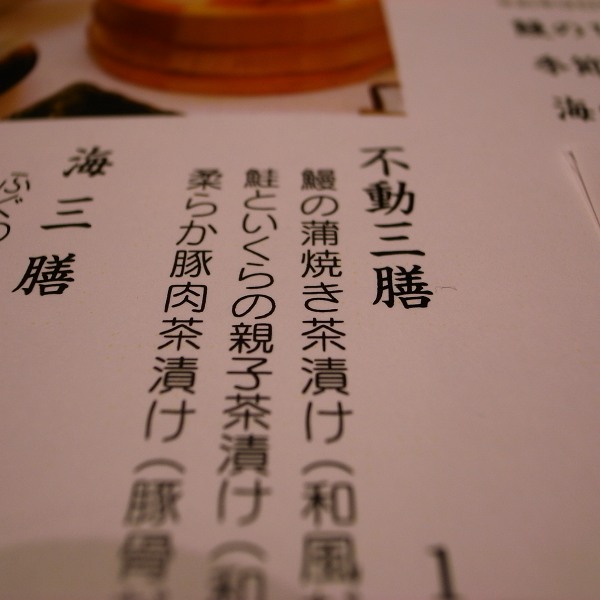 季節
海
不動三膳
鰻の蒲焼き茶漬け（和風
鮭といくらの親子茶漬け（和
柔らか豚肉茶漬け（豚骨
海三膳
ふぐ
1